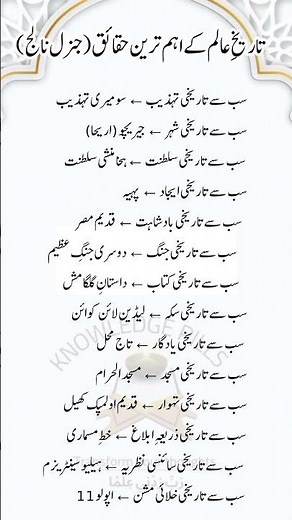 تاریخِ عالم کے اہم ترین حقائق (جنرل نالج)
سب سے تاریخی تہذیب ← سومیری تہذیب
سب سے تاریخی شہر ← جیریچو (اریحا)
سب سے تاریخی سلطنت ← ہخامنشی سلطنت
سب سے تاریخی ایجاد ← پہیہ
سب سے تاریخی بادشاہت ← قدیم مصر
سب سے تاریخی جنگ ← دوسری جنگِ عظیم
سب سے تاریخی کتاب ← داستانِ گلگامش
سب سے تاریخی سکہ ← لیڈین لائن کوائن
سب سے تاریخی یادگار ← تاج محل
سب سے تاریخی مسجد ← مسجد الحرام
سب سے تاریخی تہوار ← قدیم اولمپک کھیل
سب سے تاریخی ذریعہ ابلاغ ← خطِ مسماری
سب سے تاریخی سائنسی نظریہ ← ہیلیو سینٹریزم
سب سے تاریخی خلائی مشن ← اپولو 11
KNOWLEDGE PILLS
رَبِّ زِدْنِي عِلْمًا